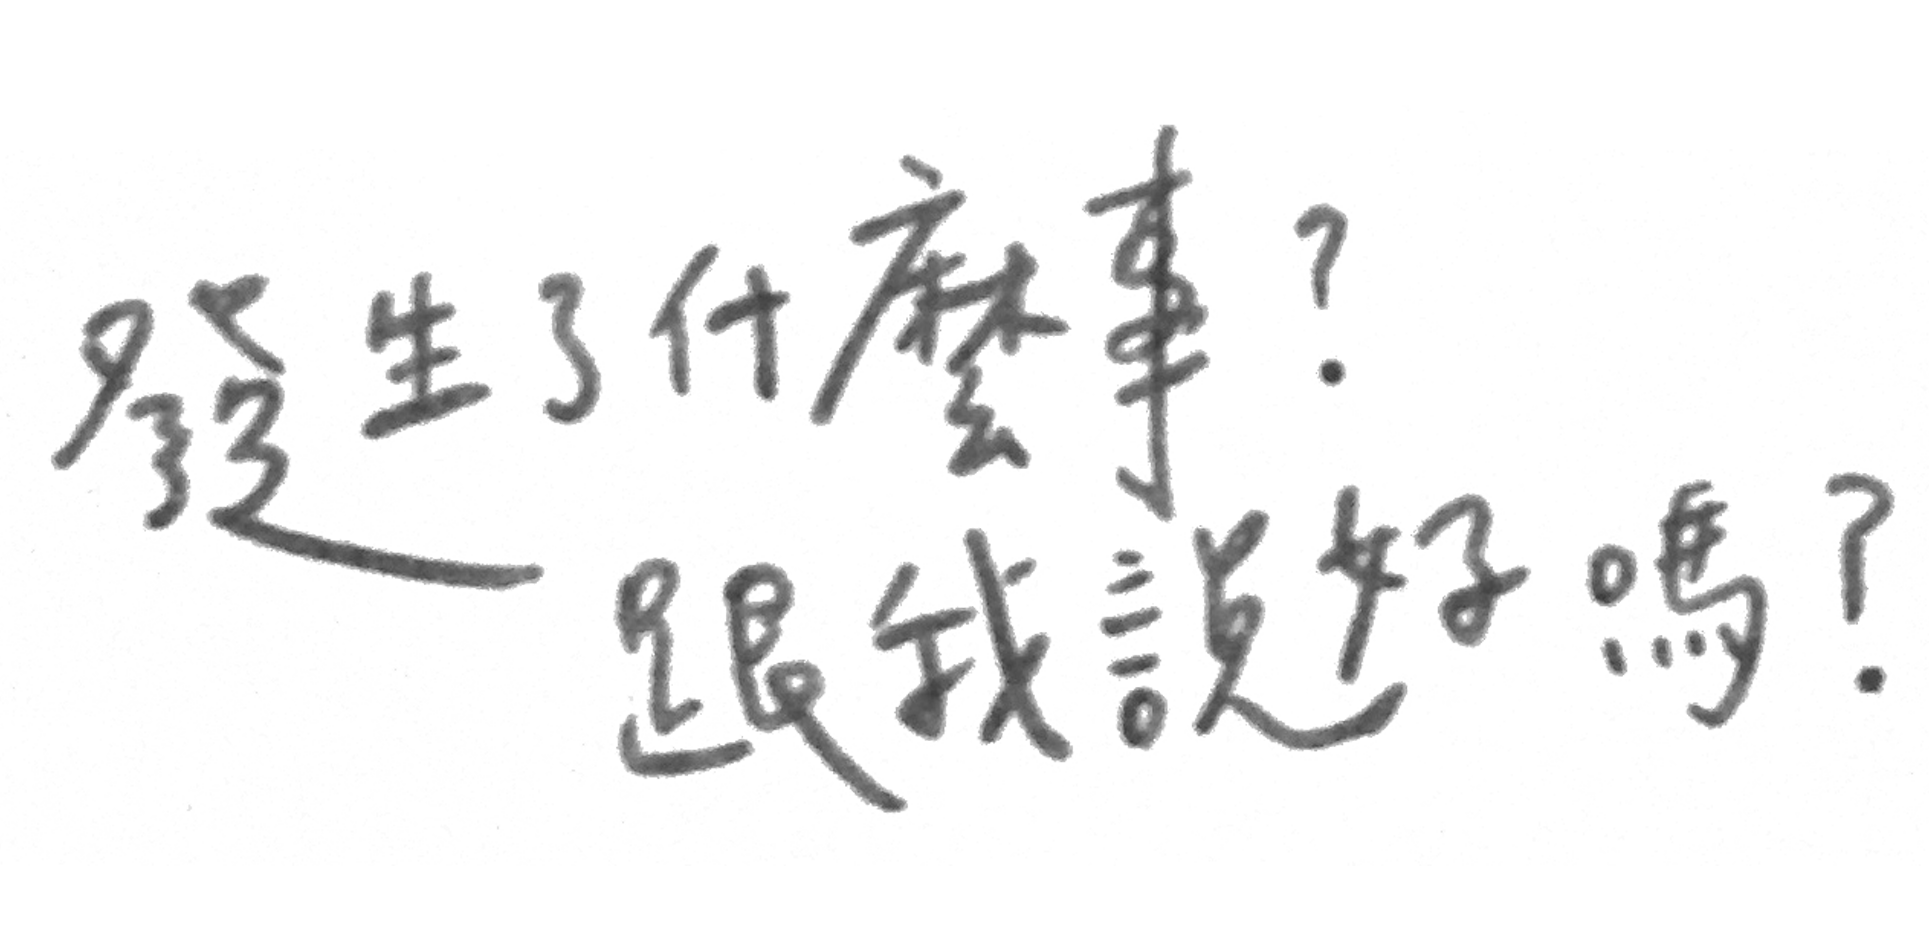 發生了什麼事?
跟我說好嗎?